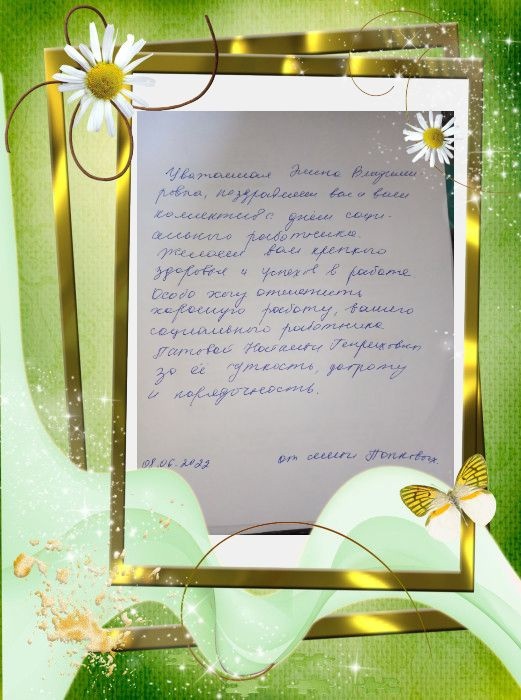 Уважаемая Элина Владими-
ровна, поздравляем вас и ваш
коллектив с днем соци-
ального работника.
Желаем вам крепкого
здоровья и успехов в работе
Особо хочу отметить
хорошую работу, вашего
социального работника
Наталью Генриховну
за её чуткость, доброту
и порядочность.
08.06.2022
от семьи Попковых.